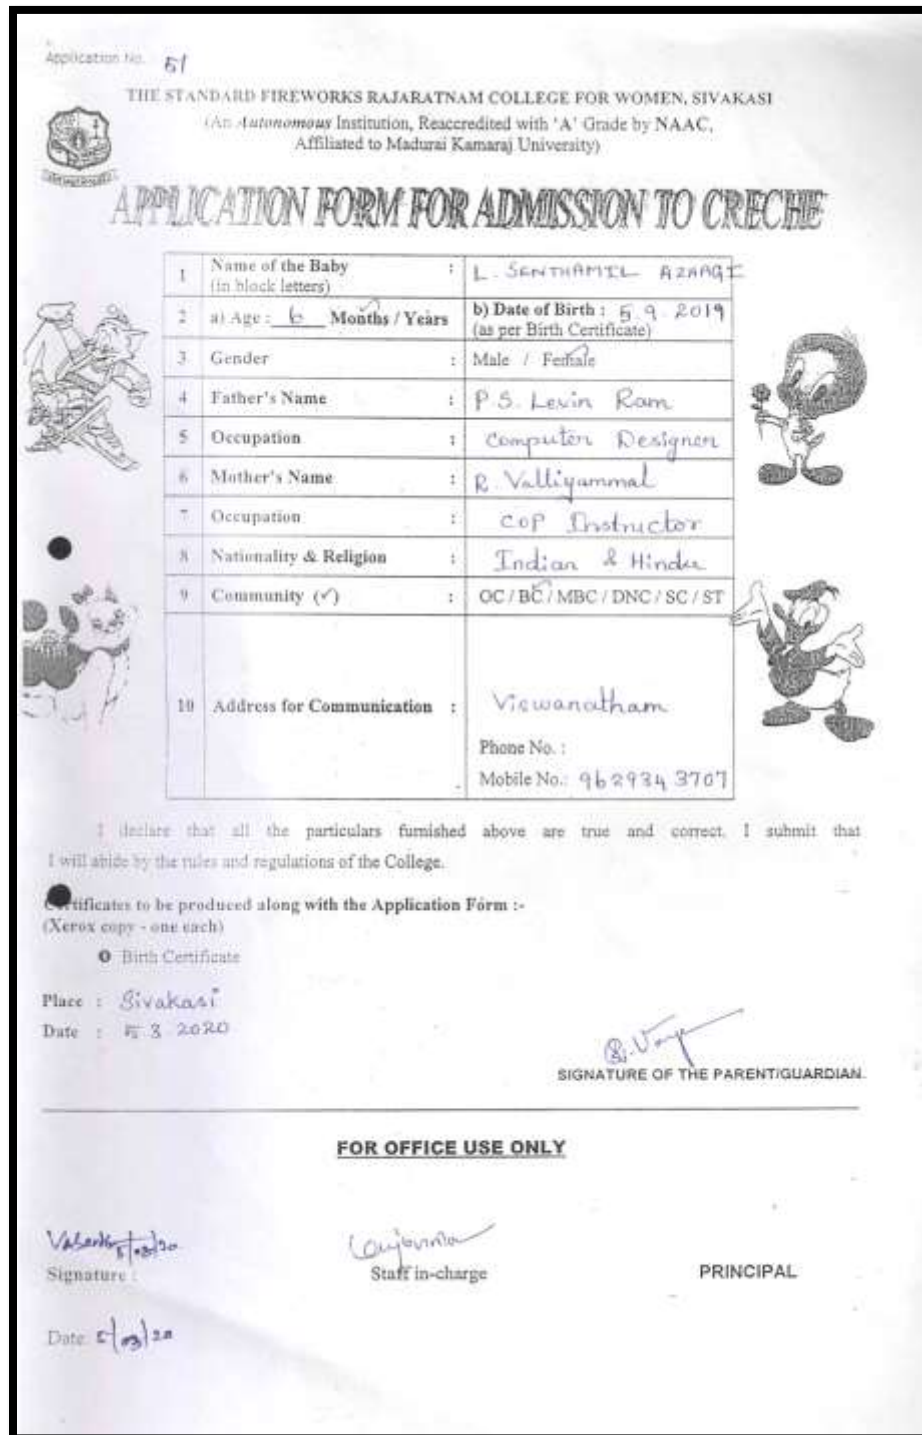 Application No. 51
THE STANDARD FIREWORKS RAJARATNAM COLLEGE FOR WOMEN, SIVAKASI
(An Autonomous Institution, Reaccredited with 'A' Grade by NAAC,
Affiliated to Madurai Kamaraj University)
APPLICATION FORM FOR ADMISSION TO CRECHE
1 Name of the Baby (in block letters) : L. SENTHAMIL AZAAGI
2 a) Age : 6 Months / Years b) Date of Birth : 5.9.2019 (as per Birth Certificate)
3 Gender : Male / Female
4 Father's Name : P.S. Levin Ram
5 Occupation : Computer Designer
6 Mother's Name : R. Valliyammal
7 Occupation : COP Instructor
8 Nationality & Religion : Indian & Hindu
9 Community (✓) : OC / BC / MBC / DNC / SC / ST
10 Address for Communication : Viswanatham
Phone No. :
Mobile No.: 9629343707
I declare that all the particulars furnished above are true and correct. I submit that
I will abide by the rules and regulations of the College.
Certificates to be produced along with the Application Form :-
(Xerox copy - one each)
Birth Certificate
Place : Sivakasi
Date : 5 3 2020
SIGNATURE OF THE PARENT/GUARDIAN.
FOR OFFICE USE ONLY
5/03/20
Signature : Staff in-charge PRINCIPAL
Date: 5/03/20